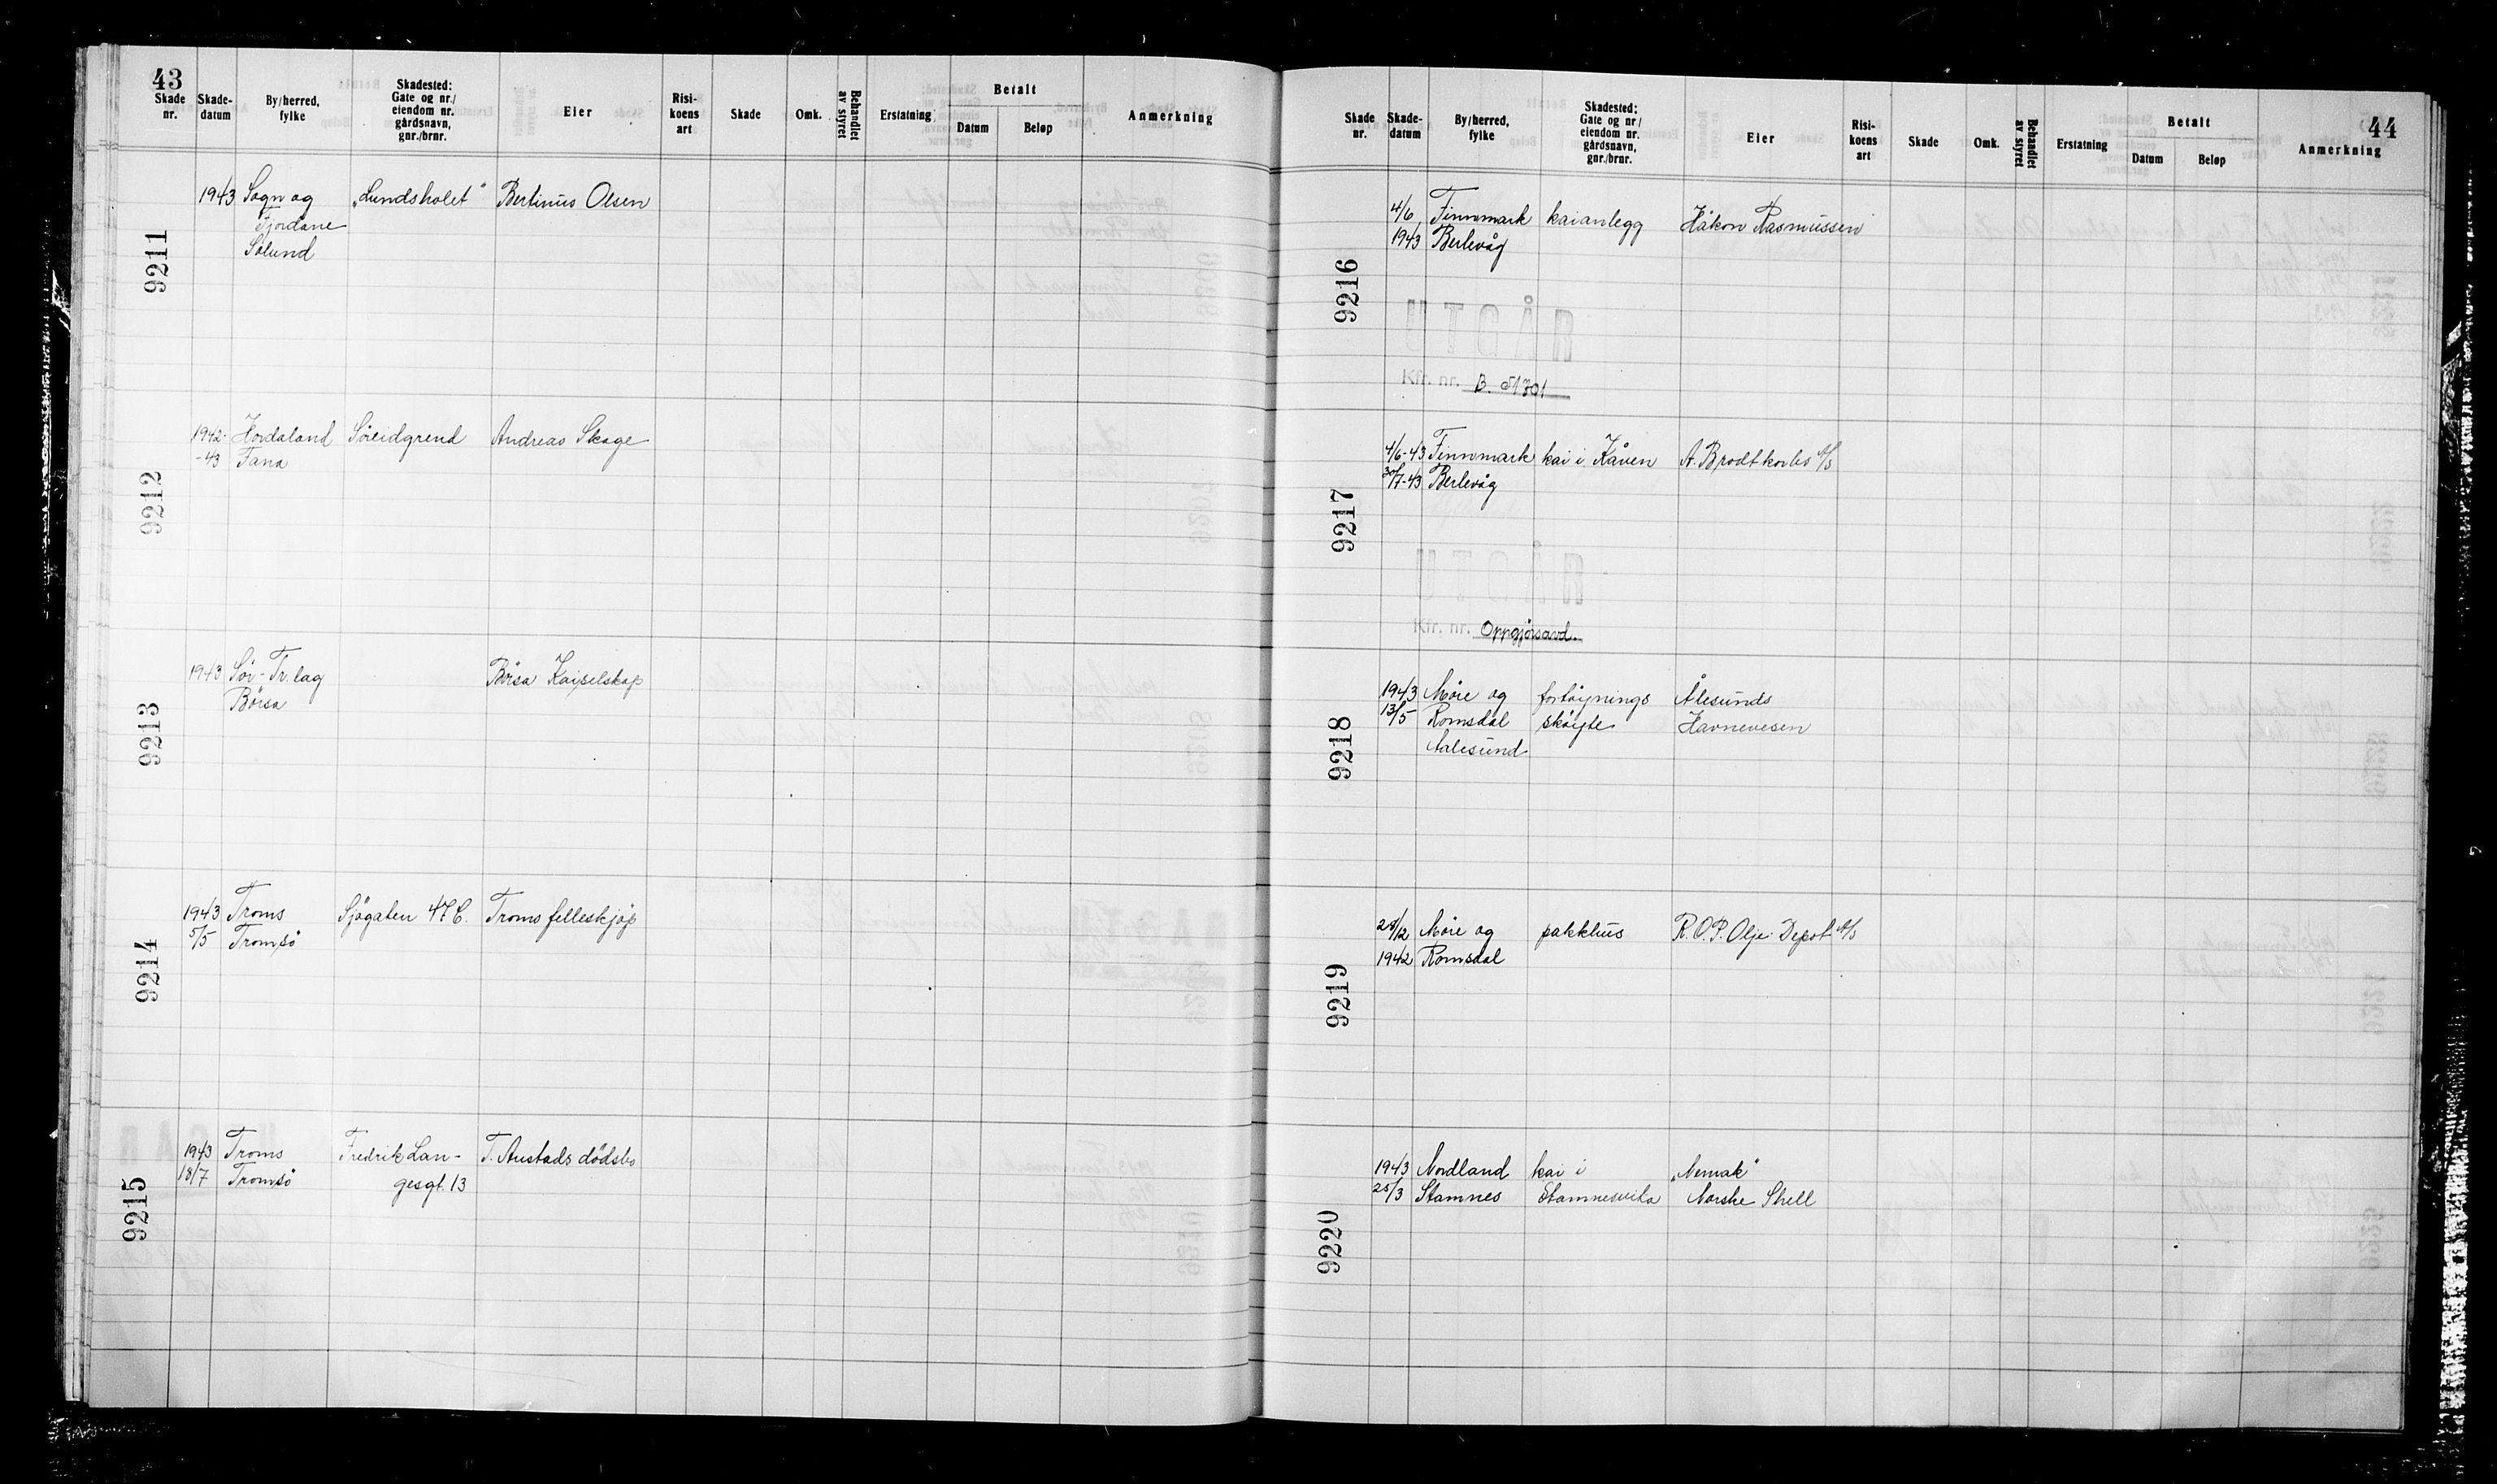 43
Skade nr.
Skade-datum
By/herred, fylke
Skadested: Gate og nr./ eiendom nr. gårdsnavn, gnr./brnr.
Eier
Risi-koens art
Skade
Omk.
Behandlet av styret
Erstatning
Betalt
Datum
Beløp
Anmerkning
9211
1943 Sogn og „Lundsholet" Bertinus Olsen
Fjordane
Solund
9212
1942- Hordaland Söreidgrend Andreas Skage
-43 Fana
9213
1943 Sör-Tr.lag Börsa Kaiselskap
Börsa
9214
1943 Troms Sjögaten 47 C. Troms felleskjöp
5/5 Tromsö
9215
1943 Troms Fredrik Lan- T. Austads dödsbo
18/7 Tromsö gesgt. 13
44
Skade nr.
Skade-datum
By/herred, fylke
Skadested: Gate og nr/ eiendom nr. gårdsnavn, gnr./brnr.
Eier
Risi-koens art
Skade
Omk.
Behandlet av styret
Erstatning
Betalt
Datum
Beløp
Anmerkning
9216
4/6 Finnmark kaianlegg Håkon Rasmussen
1943 Berlevåg
UTGÅR
Kfr. nr. B.
9217
4/6-43 Finnmark kai i Kåven A. Brodtkorbs A/S
30/7-43 Berlevåg
UTGÅR
Kfr. nr. Oppgjörsavd.
9218
1943 Möre og fortöynings Ålesunds
13/5 Romsdal sköyte Havnevesen
Aalesund
9219
Möre og pakkhus R.O.P. Olje-Depot A/S
1942 Romsdal
9220
1943 Nordland kai i „Nemak"
25/3 Stamnes Stamnesvika Norske Shell